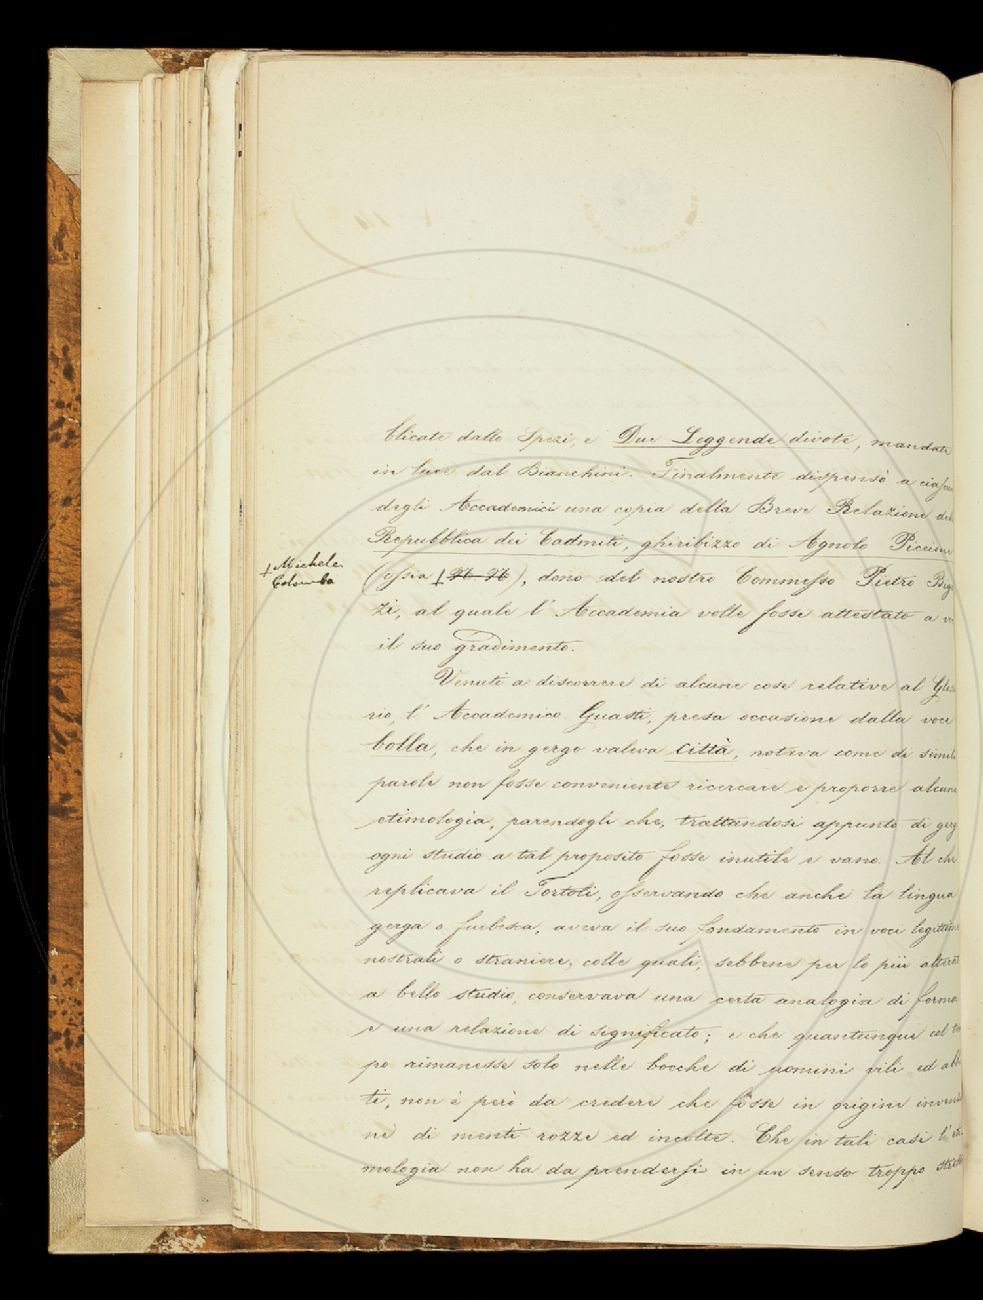 blicate dallo Spezi, e Due Leggende divote, mandate
in luce dal Bianchini. Finalmente dispensò a ciascu
degli Accademici una copia della Breve Relazione del
Repubblica dei Cadmiti, ghiribizzo di Agnolo Piccinni
† Michele
Colombo
(ossia † N. N.), dono del nostro Commesso Pietro Big
zi, al quale l'Accademia volle fosse attestato a vo
il suo gradimento.
Venuti a discorrere di alcune cose relative al Glos
rio, l'Accademico Guasti, presa occasione dalla voce
bolla, che in gergo valeva città, notava come di simili
parole non fosse conveniente ricercare e proporre alcuna
etimologia, parendogli che, trattandosi appunto di gerg
ogni studio a tal proposito fosse inutile e vano. Al che
replicava il Tortoli, osservando che anche la lingua
gerga o furbesca, aveva il suo fondamento in voci legittime
nostrali o straniere, colle quali, sebbene per lo più alterat
a bello studio, conservava una certa analogia di forma
e una relazione di significato; e che quantunque col te
po rimanesse solo nelle bocche di uomini vili ed abb
ti, non è però da credere che fosse in origine invenzi
ne di menti rozze ed incolte. Che in tali casi l'eti
mologia non ha da prendersi in un senso troppo strett